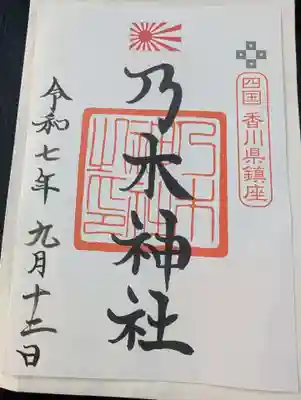 四国 香川県鎮座
乃木神社
令和七年 九月十二日